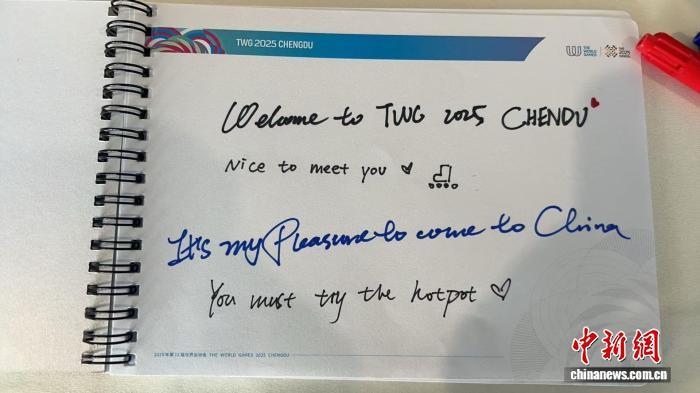 TWG 2025 CHENGDU
THE WORLD GAMES
Welcome to TWG 2025 CHENDU
Nice to meet you
It's my Pleasure to come to China
You must try the hotpot
2025年第12届世界运动会 THE WORLD GAMES 2025 CHENGDU
中新網
chinanews.com.cn